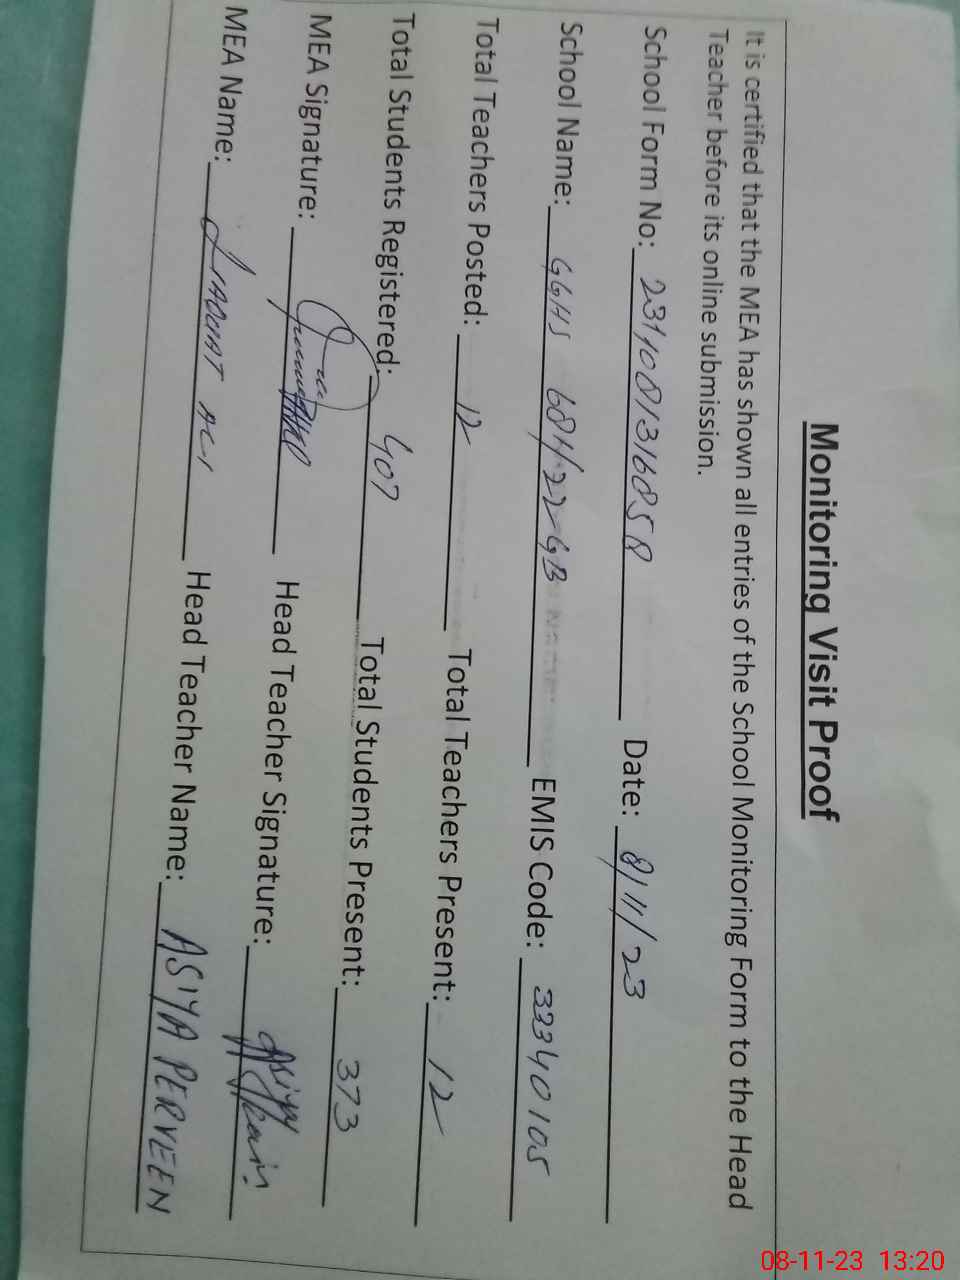 Monitoring Visit Proof
It is certified that the MEA has shown all entries of the School Monitoring Form to the Head
Teacher before its online submission.
School Form No: Date: 8/11/23
School Name: GGHS 684/22-GB EMIS Code: 33340105
Total Teachers Posted: 12 Total Teachers Present: 12
Total Students Registered: 407 Total Students Present: 373
MEA Signature: Head Teacher Signature:
MEA Name: LIAQUAT ALI Head Teacher Name: ASIYA PERVEEN
08-11-23 13:20